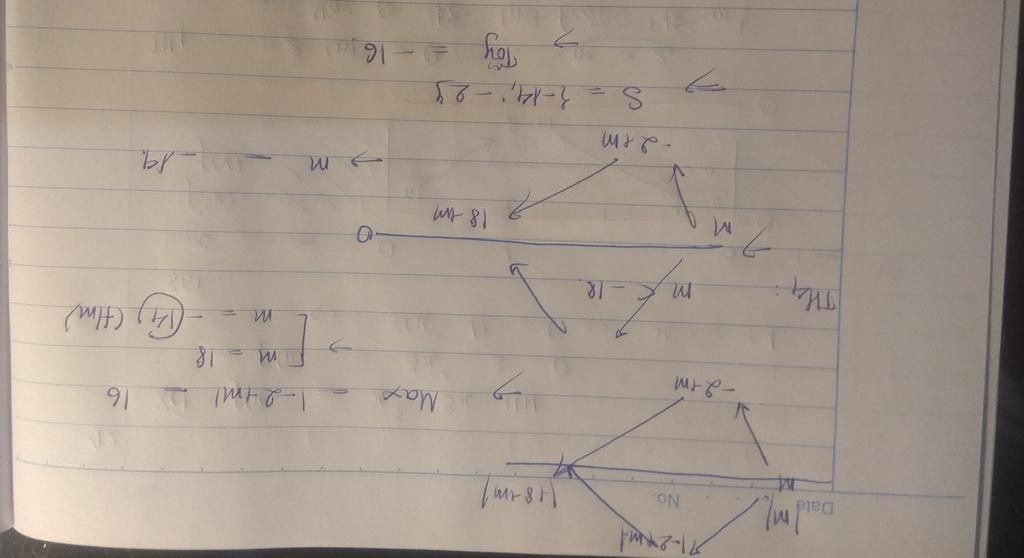 Date No.
|m| |-2+m| |18+m|
m -2+m
→ Max = |-2+m| = 16
→ [ m = 18
m = -14 (t/m)
TH4: m < -18
m 18+m 0
-2+m → m = -14
→ S = {-14; -2}
→ Tổng = -16